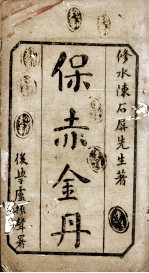 修水陳石屏先生著
保赤金丹
後學盧振聲著